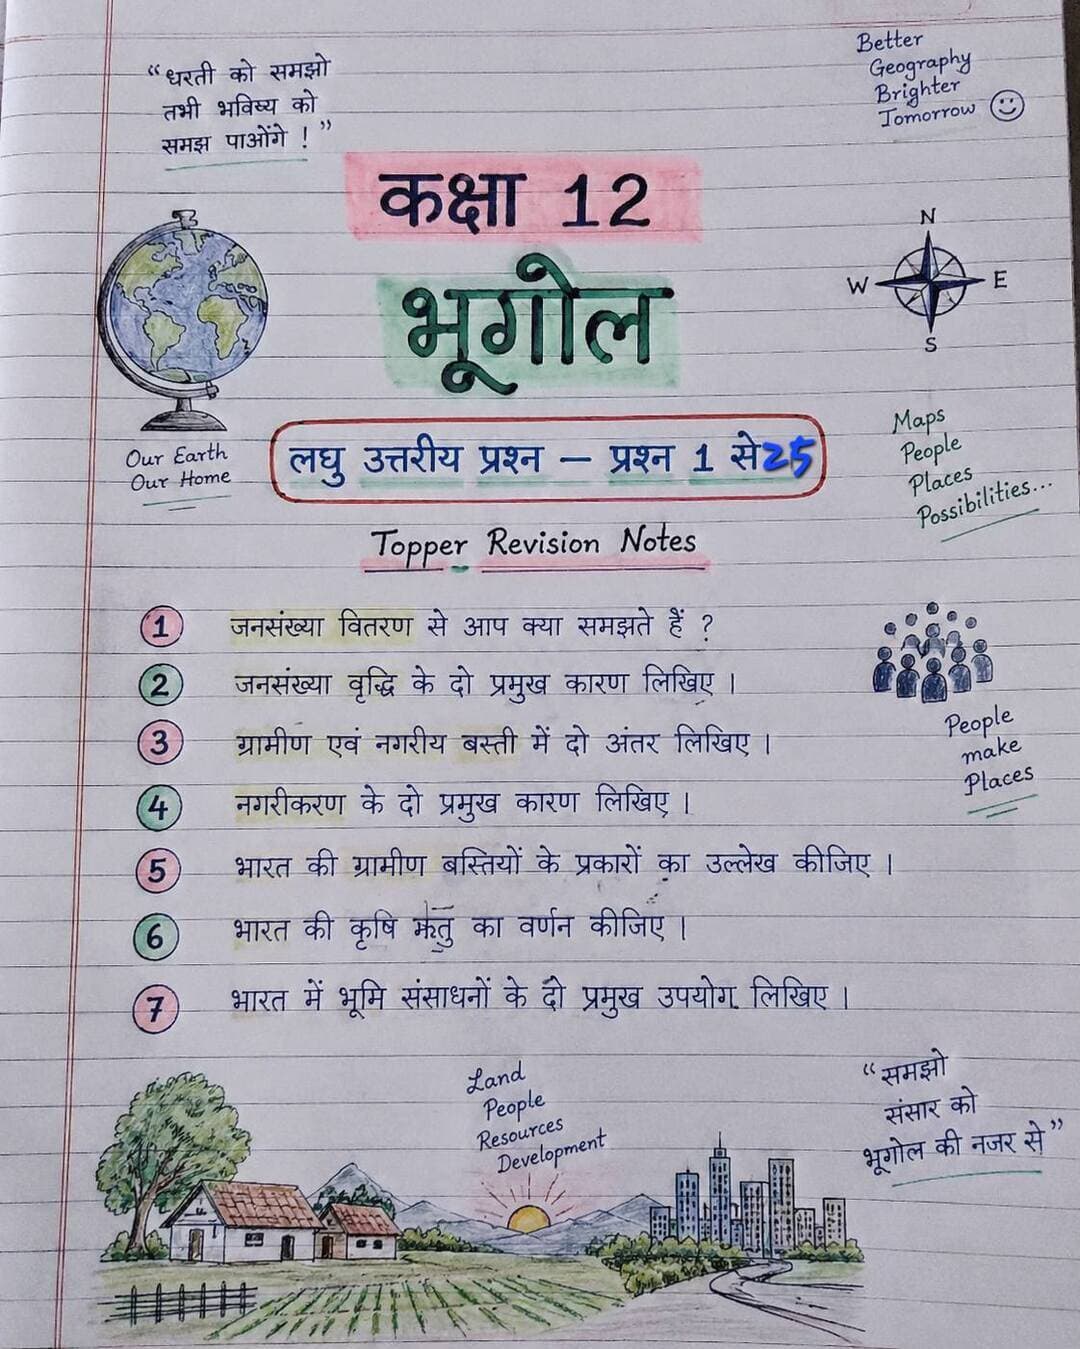 “धरती को समझो
तभी भविष्य को
समझ पाओंगे ! ”
Better
Geography
Brighter
Tomorrow
कक्षा 12
भूगोल
N
W
E
S
Our Earth
Our Home
लघु उत्तरीय प्रश्न – प्रश्न 1 से 25
Maps
People
Places
Possibilities...
Topper Revision Notes
1 जनसंख्या वितरण से आप क्या समझते हैं ?
2 जनसंख्या वृद्धि के दो प्रमुख कारण लिखिए ।
3 ग्रामीण एवं नगरीय बस्ती में दो अंतर लिखिए ।
People
make
Places
4 नगरीकरण के दो प्रमुख कारण लिखिए ।
5 भारत की ग्रामीण बस्तियों के प्रकारों का उल्लेख कीजिए ।
6 भारत की कृषि का वर्णन कीजिए ।
7 भारत में भूमि संसाधनों के दो प्रमुख उपयोग लिखिए ।
Land
People
Resources
Development
“समझो
संसार को
भूगोल की नजर से”